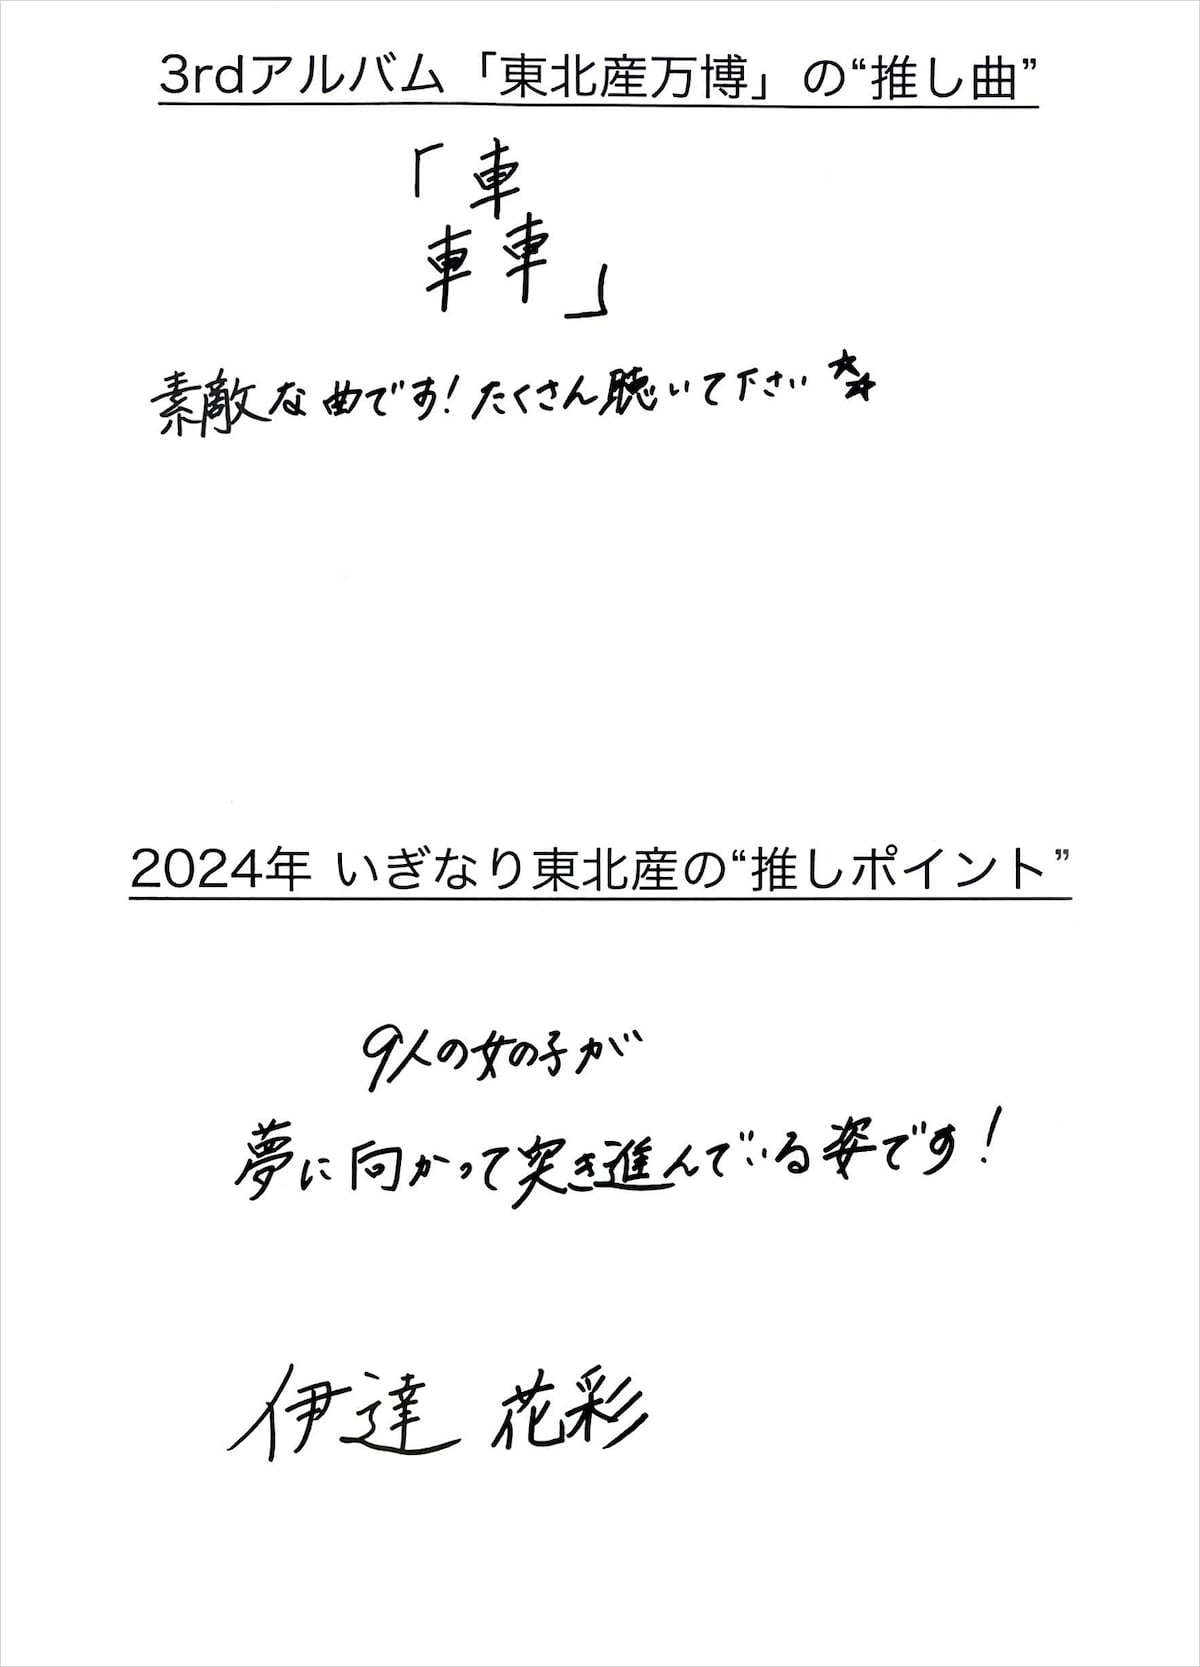 3rdアルバム「東北産万博」の“推し曲”
「車
車車」
素敵な曲です!たくさん聴いて下さい☆☆
2024年 いぎなり東北産の“推しポイント”
9人の女の子が
夢に向かって突き進んでいる姿です!
伊達 花彩